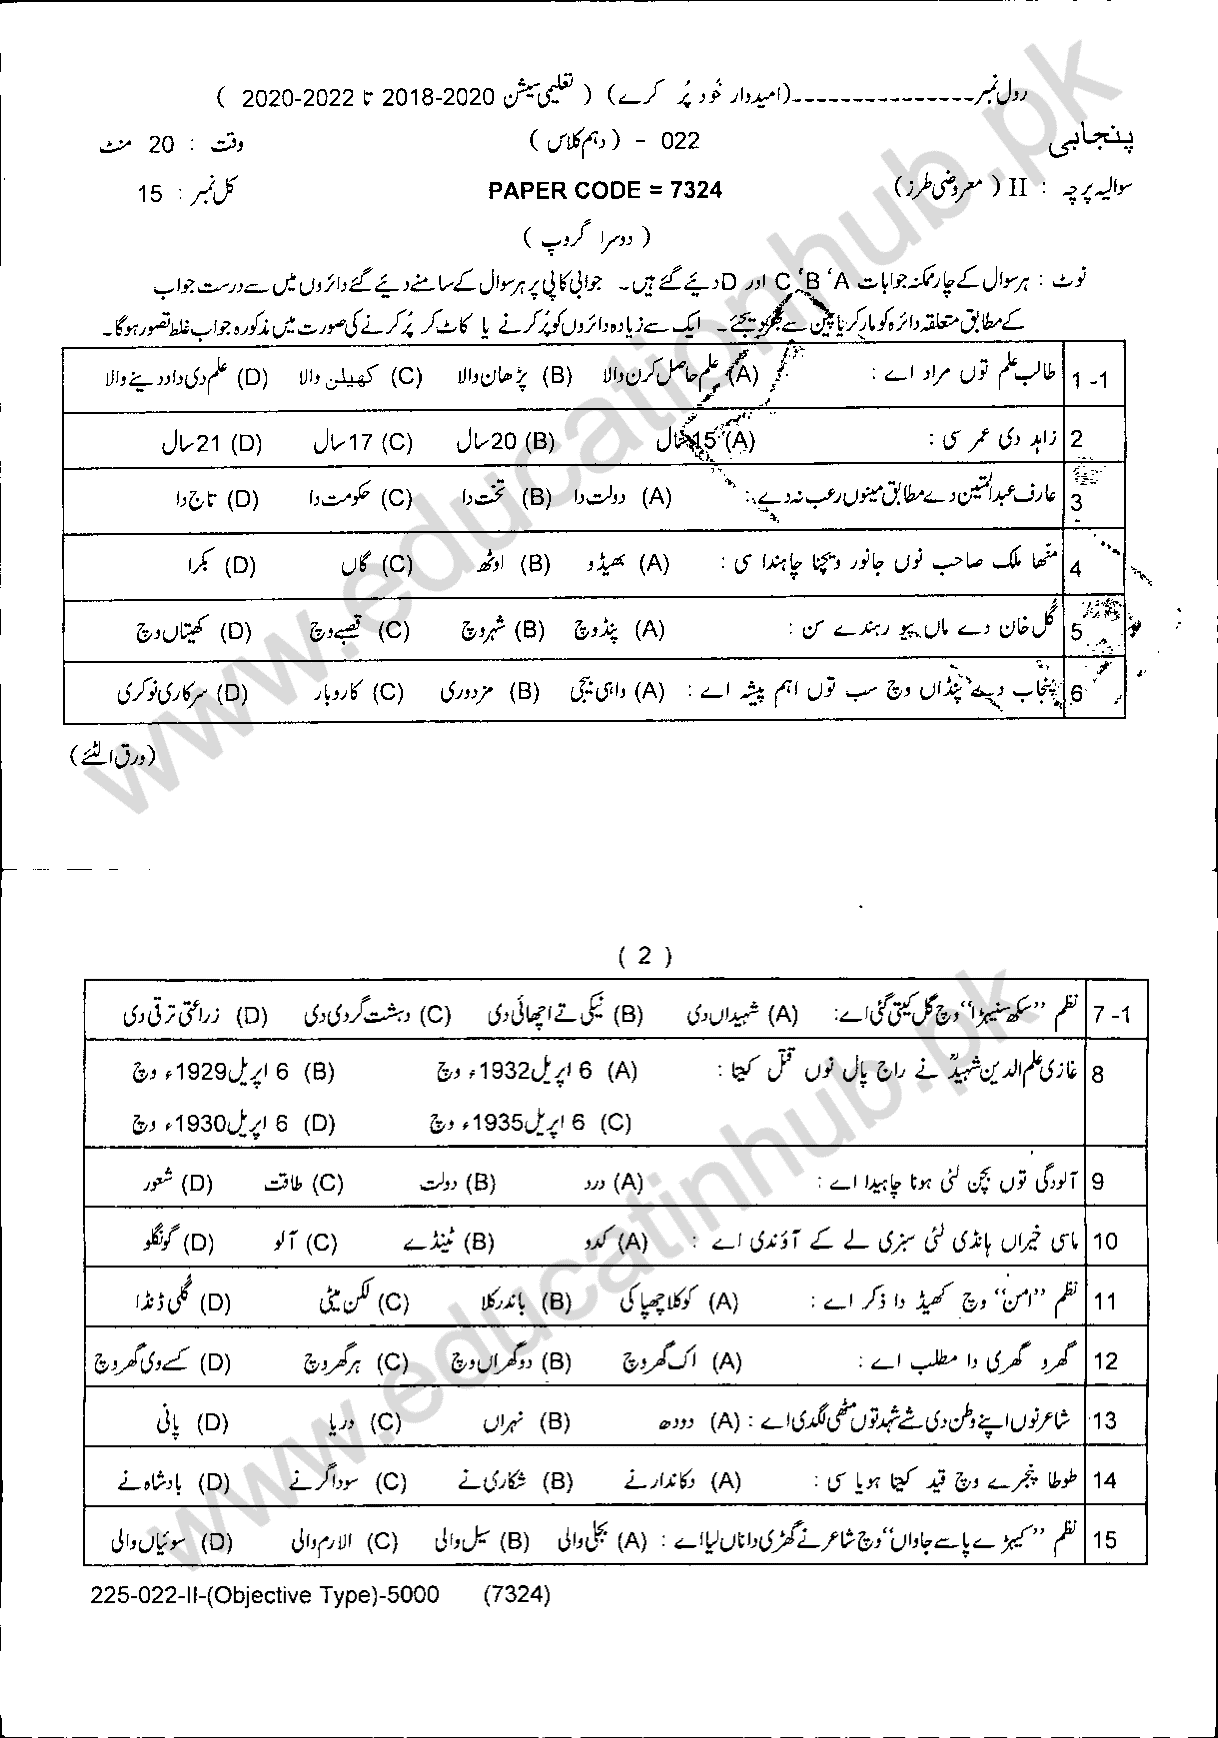 رول نمبر---------------(امیدوار خود پُر کرے) ( تعلیمی سیشن 2018-2020 تا 2020-2022 )
پنجابی 022 - ( دہم کلاس ) وقت : 20 منٹ
سوالیہ پرچہ : II ( معروضی طرز ) PAPER CODE = 7324 کل نمبر : 15
( دوسرا گروپ )
نوٹ : ہر سوال کے چار ممکنہ جوابات A ‘ B ‘ C اور D دیئے گئے ہیں ۔ جوابی کاپی پر ہر سوال کے سامنے دیئے گئے دائروں میں سے درست جواب
کے مطابق متعلقہ دائرہ کو مارکر یا پین سے بھر دیجئے ۔ ایک سے زیادہ دائروں کو پُر کرنے یا کاٹ کر پُر کرنے کی صورت میں مذکورہ جواب غلط تصور ہوگا۔
1-1 طالب علم توں مراد اے : (A) علم حاصل کرن والا (B) پڑھان والا (C) کھیلن والا (D) علم دی داد دینے والا
2 زاہد دی عمر سی : (A) 15سال (B) 20سال (C) 17سال (D) 21سال
3 عارف عبدالمتین دے مطابق مینوں رعب نہ دے : (A) دولت دا (B) تخت دا (C) حکومت دا (D) تاج دا
4 مٹھا ملک صاحب نوں جانور ویچنا چاہندا سی : (A) بھیڈو (B) اوٹھ (C) گاں (D) بکرا
5 گل خان دے ماں پیو رہندے سن : (A) پنڈ وچ (B) شہر وچ (C) قصبے وچ (D) کھیتاں وچ
6 پنجاب دے پنڈاں وچ سب توں اہم پیشہ اے : (A) واہی بیجی (B) مزدوری (C) کاروبار (D) سرکاری نوکری
(ورق الٹئے)
( 2 )
7-1 نظم ”سکھ سنیہڑا“ وچ گل کیتی گئی اے: (A) شہیداں دی (B) نیکی تے اچھائی دی (C) دہشت گردی دی (D) زراعتی ترقی دی
8 غازی علم الدین شہیدؒ نے راج پال نوں قتل کیتا : (A) 6 اپریل1932ء وچ (B) 6 اپریل1929ء وچ
(C) 6 اپریل1935ء وچ (D) 6 اپریل1930ء وچ
9 آلودگی توں بچن لئی ہونا چاہیدا اے : (A) درد (B) دولت (C) طاقت (D) شعور
10 ماسی خیراں ہانڈی لئی سبزی لے کے آؤندی اے : (A) کدو (B) ٹینڈے (C) آلو (D) گونگلو
11 نظم ”امن“ وچ کھیڈ دا ذکر اے : (A) کوکلا چھپاکی (B) باندر کلا (C) لکن میٹی (D) گلی ڈنڈا
12 گھرو گھری دا مطلب اے : (A) اک گھر وچ (B) دو گھراں وچ (C) ہر گھر وچ (D) کسے وی گھر وچ
13 شاعر نوں اپنے وطن دی شے شہد توں مٹھی لگدی اے : (A) دودھ (B) نہراں (C) دریا (D) پانی
14 طوطا پنجرے وچ قید کیتا ہویا سی : (A) دکاندار نے (B) شکاری نے (C) سوداگر نے (D) بادشاہ نے
15 نظم ”کیہڑے پاسے جاواں“ وچ شاعر نے گھڑی دا ناں لیا اے : (A) بجلی والی (B) سیل والی (C) الارم والی (D) سوئیاں والی
225-022-II-(Objective Type)-5000 (7324)
www.educatinhub.pk
www.educatinhub.pk